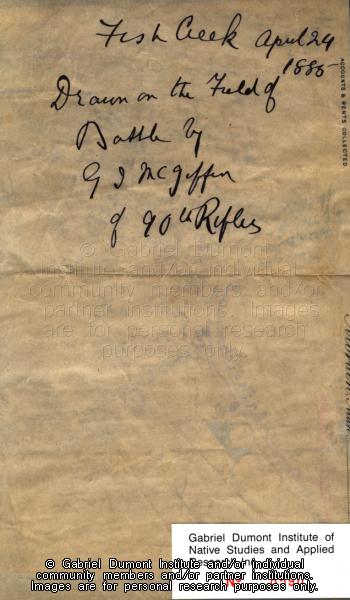 Fish Creek April 24
1885
Drawn on the Field of
Battle by
G I McGiffin
of 90th Rifles
ACCOUNTS & RENTS COLLECTED
© Gabriel Dumont
Institute and/or individual
community members and/or
partner institutions. Images
are for personal research
purposes only.
Gabriel Dumont Institute of
Native Studies and Applied
© Gabriel Dumont Institute and/or individual
community members and/or partner institutions.
Images are for personal research purposes only.